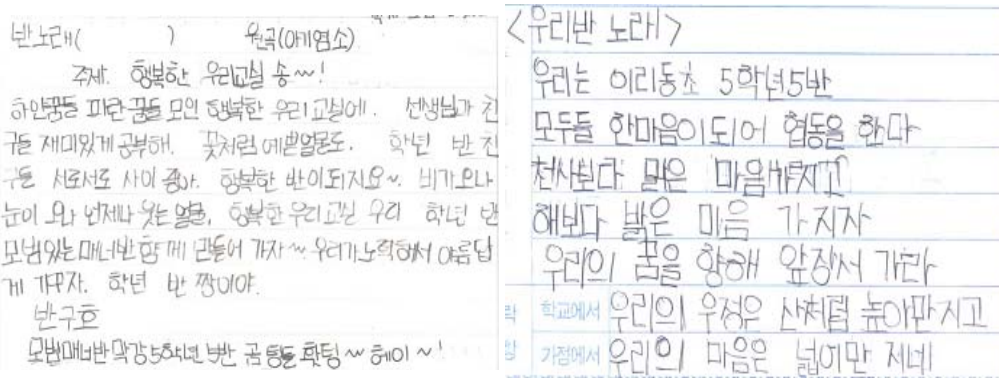 반노래(          ) 원곡(아기염소)
주제. 행복한 우리교실 송~!
하얀꿈들 파란꿈들 모인 행복한 우리교실에. 선생님과 친
구들 재미있게 공부해. 꽃처럼 예쁜얼굴도. 학년 반 친
구들 서로서로 사이 좋아. 행복한 반이되지요~. 비가오나
눈이 오나 언제나 웃는 얼굴. 행복한 우리교실 우리 학년 반
모범있는 매너반 함께 만들어 가자~ 우리가노력해서 아름답
게 가꾸자. 학년 반 짱이야.
반구호
모범매너반 막강5학년 5반 곰돌 홧팅~ 헤이~!
<우리반 노래>
우리는 이리동초 5학년5반
모두들 한마음이되어 협동을 한다
천사보다 맑은 마음가지고
해보다 밝은 미음 가지자
우리의 꿈을 향해 앞장서 가라
학교에서 우리의 우정은 산처럼 높아만지고
가정에서 우리의 마음은 넓어만 지네